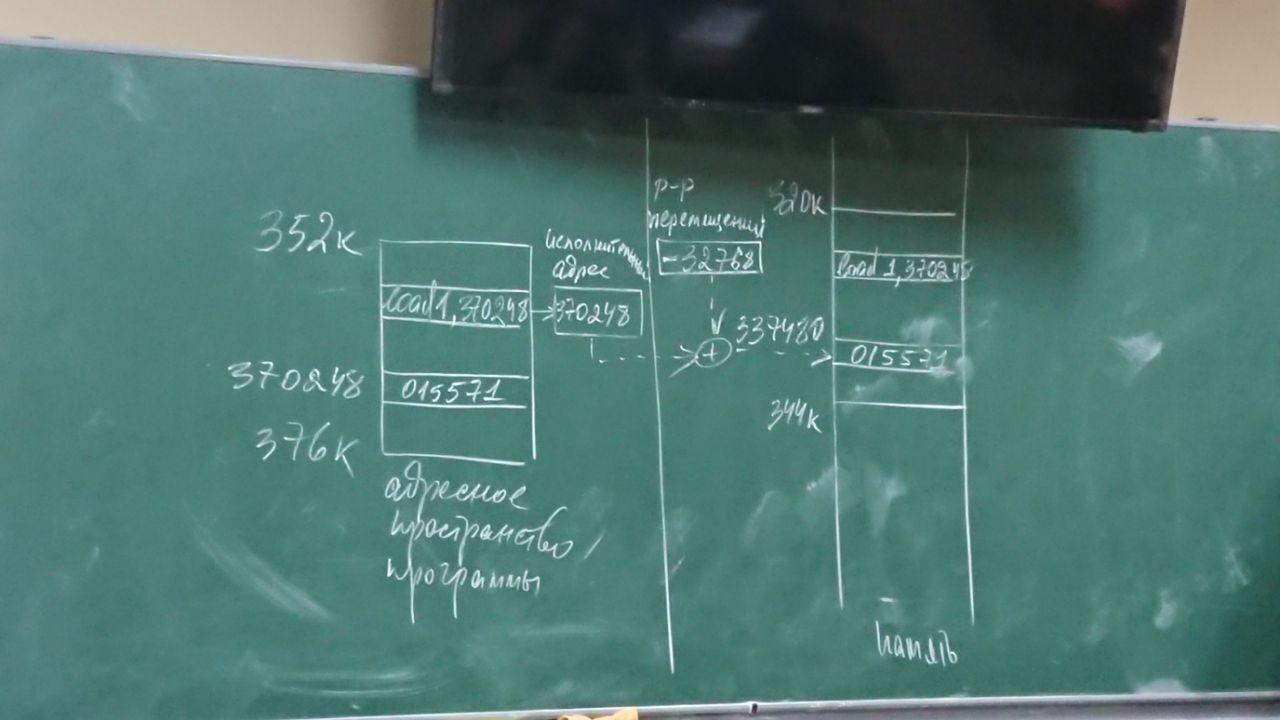 352к
load 1,370248
370248
015571
376к
адресное
пространство
программы
исполнительный
адрес
370248
р-р
перемещения
-32768
+
337480
320к
load 1,370248
015571
344к
память